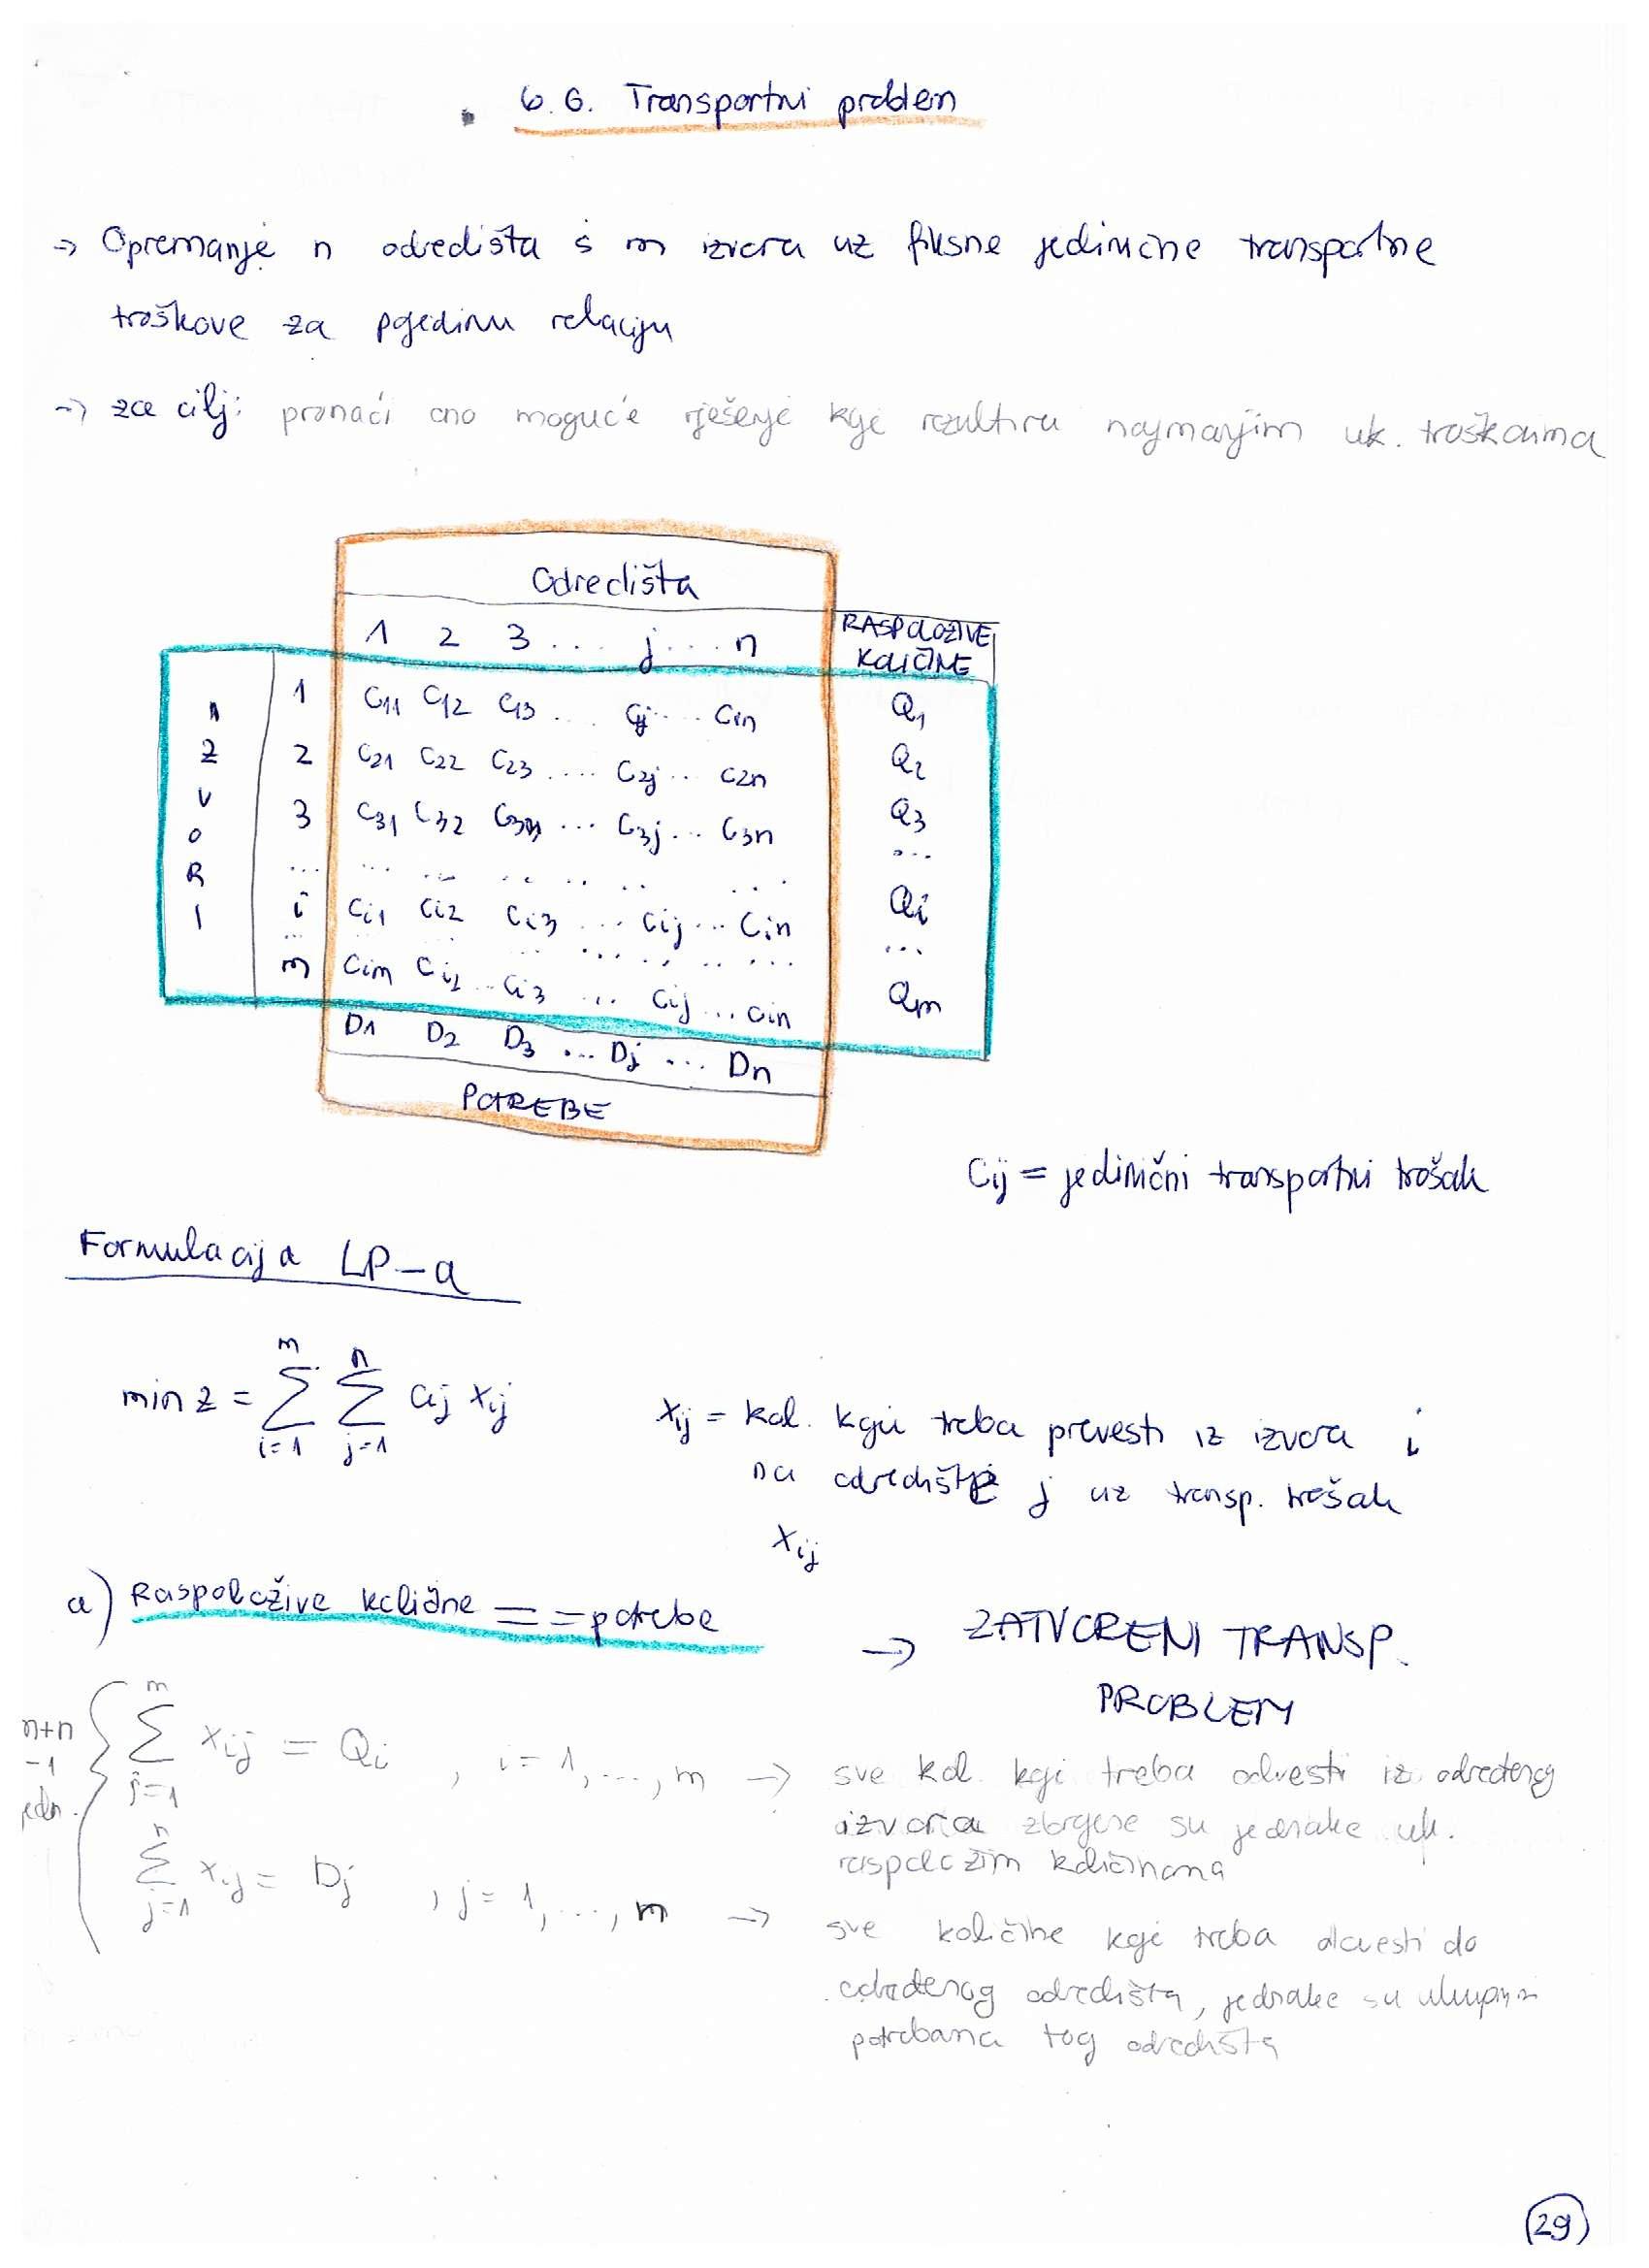 6.6. Transportni problem
→ Opremanje n odredišta s m izvora uz fiksne jedinične transportne
troškove za pojedinu relaciju
→ za cilj: pronaći ono moguće rješenje koje rezultira najmanjim uk. troškovima
Odredišta
1 2 3 ... j ... n RASPOLOŽIVE KOLIČINE
IZVORI
1 C11 C12 C13 ... Cij ... Cin Q1
2 C21 C22 C23 .... C2j .. C2n Q2
3 C31 C32 C33 ... C3j ... C3n Q3
... ... ... ... ... ... ...
i Ci1 Ci2 Ci3 ... Cij ... Cin Qi
... ... ... ... ... ...
m Cim Ci2 .. Ci3 ... Cij ... Cin Qm
D1 D2 D3 ... Dj ... Dn
POTREBE
Cij = jedinični transportni trošak
Formulacija LP-a
min z = m Σ i=1 n Σ j=1 Cij xij
xij = kol. koju treba prevesti iz izvora i
na odredište j uz transp. trošak
xij
a) Raspoložive količine = = potrebe → ZATVORENI TRANSP.
PROBLEM
n+n
-1
jedn.
m Σ j=1 xij = Qi , i = 1, ..., m → sve kol. koje treba odvesti iz određenog
izvora zbrojene su jednake uk.
raspoloživim količinama
n Σ j=1 xij = Dj , j = 1, ..., m → sve količine koje treba dovesti do
određenog odredišta, jednake su ukupnim
potrebama tog odredišta
29